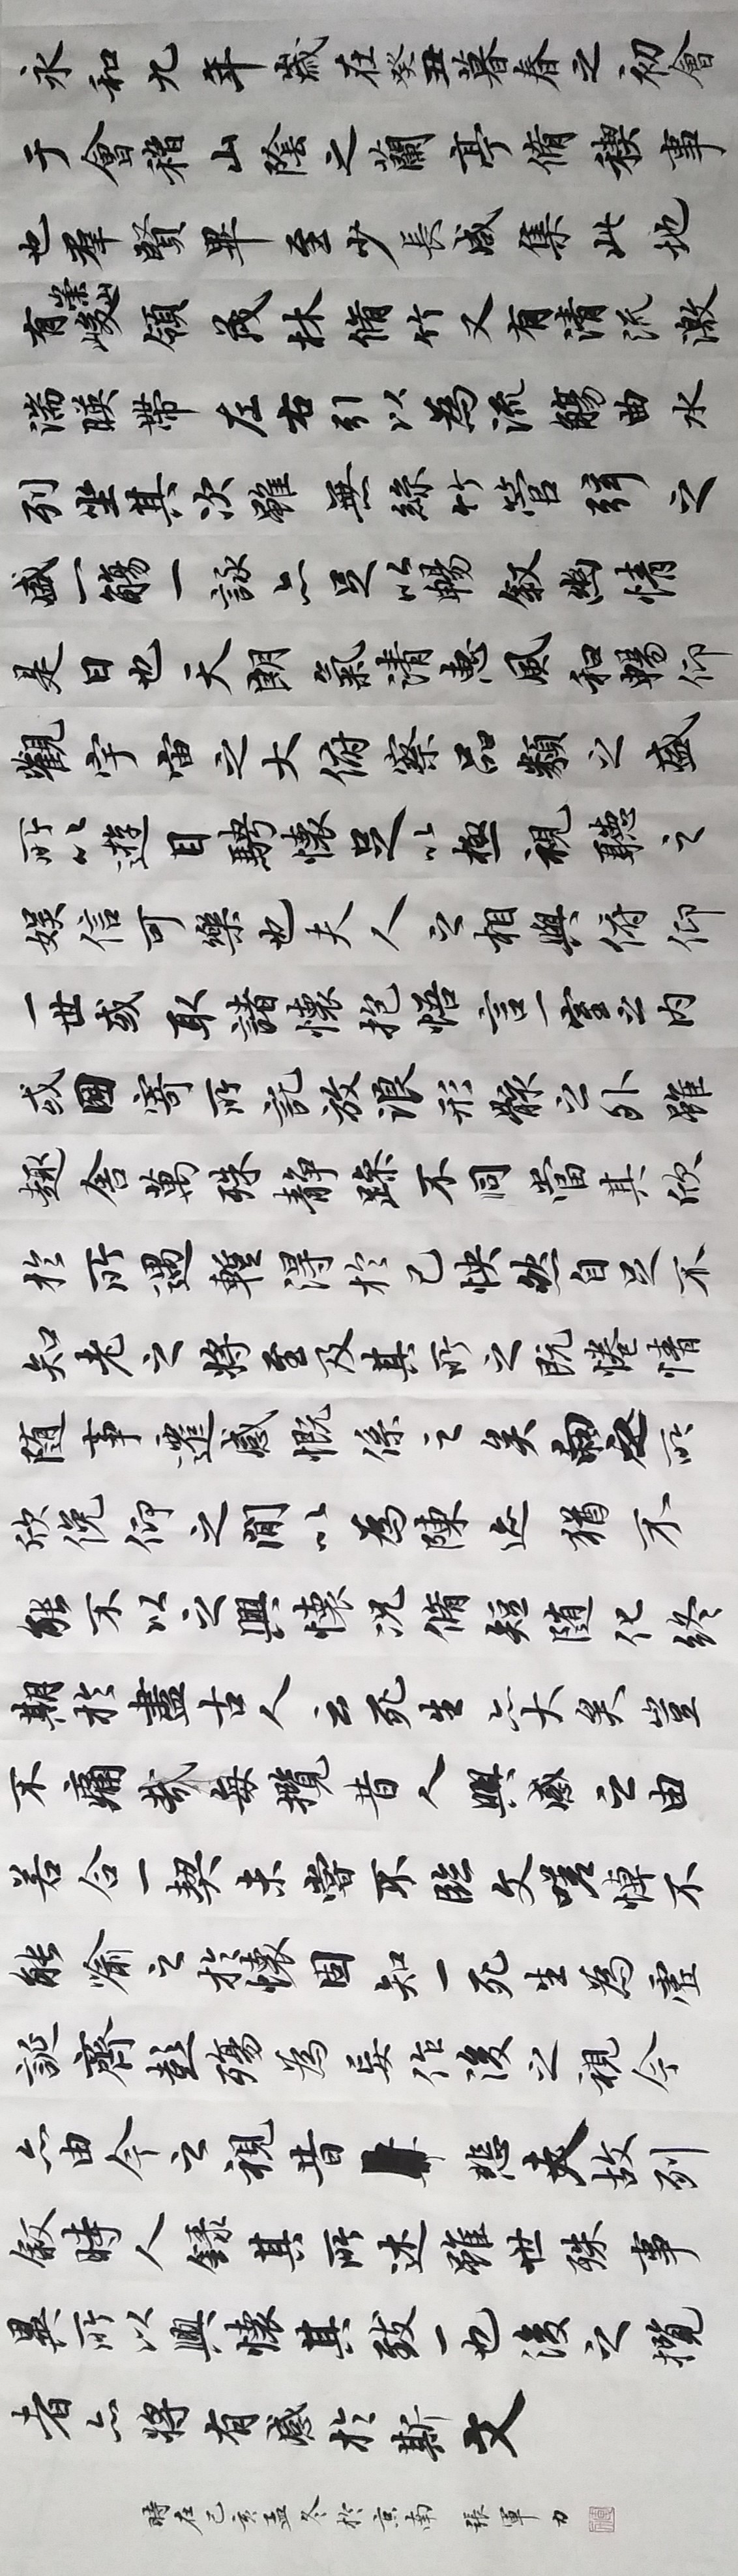 永和九年歲在癸丑暮春之初會
于會稽山陰之蘭亭脩禊事
也羣賢畢至少長咸集此地
有崇山峻領茂林脩竹又有清流激
湍暎帶左右引以為流觴曲水
列坐其次雖無絲竹管弦之
盛一觴一詠亦足以暢敘幽情
是日也天朗氣清惠風和暢仰
觀宇宙之大俯察品類之盛
所以遊目騁懷足以極視聽之
娛信可樂也夫人之相與俯仰
一世或取諸懷抱悟言一室之內
或因寄所託放浪形骸之外雖
趣舍萬殊靜躁不同當其欣
於所遇暫得於己怏然自足不
知老之將至及其所之既惓情
隨事遷感慨係之矣向之所
欣俛仰之間以為陳迹猶不
能不以之興懷況脩短隨化終
期於盡古人云死生亦大矣豈
不痛哉每攬昔人興感之由
若合一契未嘗不臨文嗟悼不
能喻之於懷固知一死生為虛
誕齊彭殤為妄作後之視今
亦由今之視昔悲夫故列
敘時人錄其所述雖世殊事
異所以興懷其致一也後之攬
者亦將有感於斯文
時在己亥孟冬於京南 張軍力